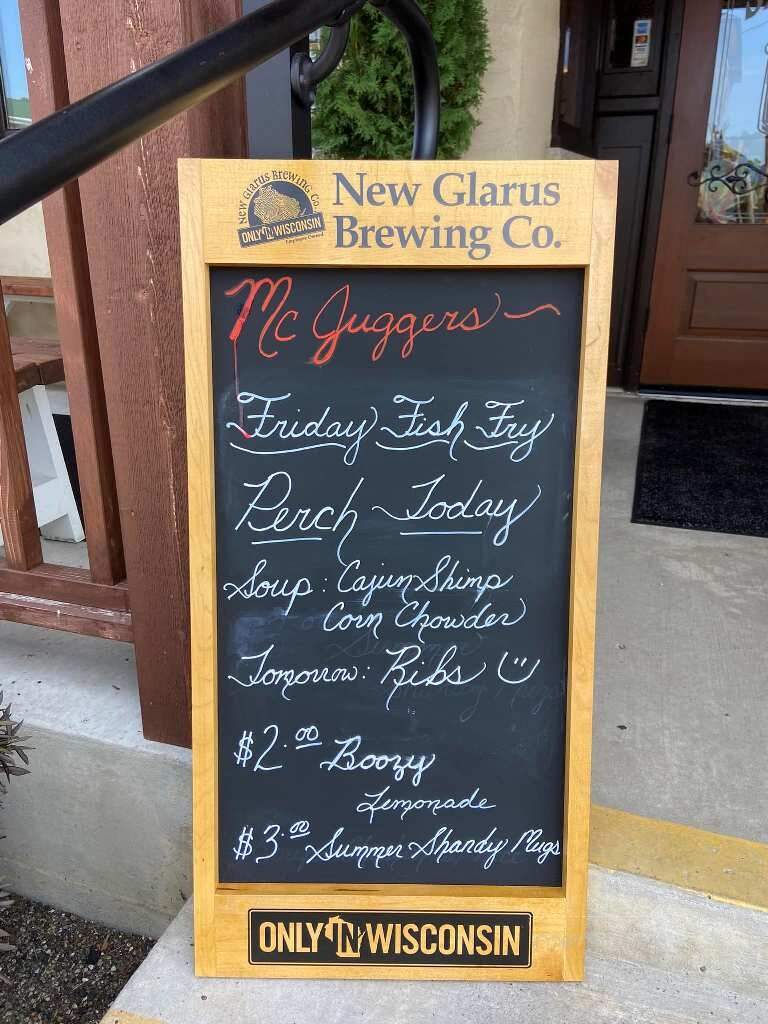 New Glarus Brewing Co.
ONLY IN WISCONSIN
New Glarus
Brewing Co.
Mc Juggers
Friday Fish Fry
Perch Today
Soup: Cajun Shimp
Corn Chowder
Tomorrow: Ribs
$2.00 Boozy
Lemonade
$3.00 Summer Shandy Mugs
ONLY IN WISCONSIN